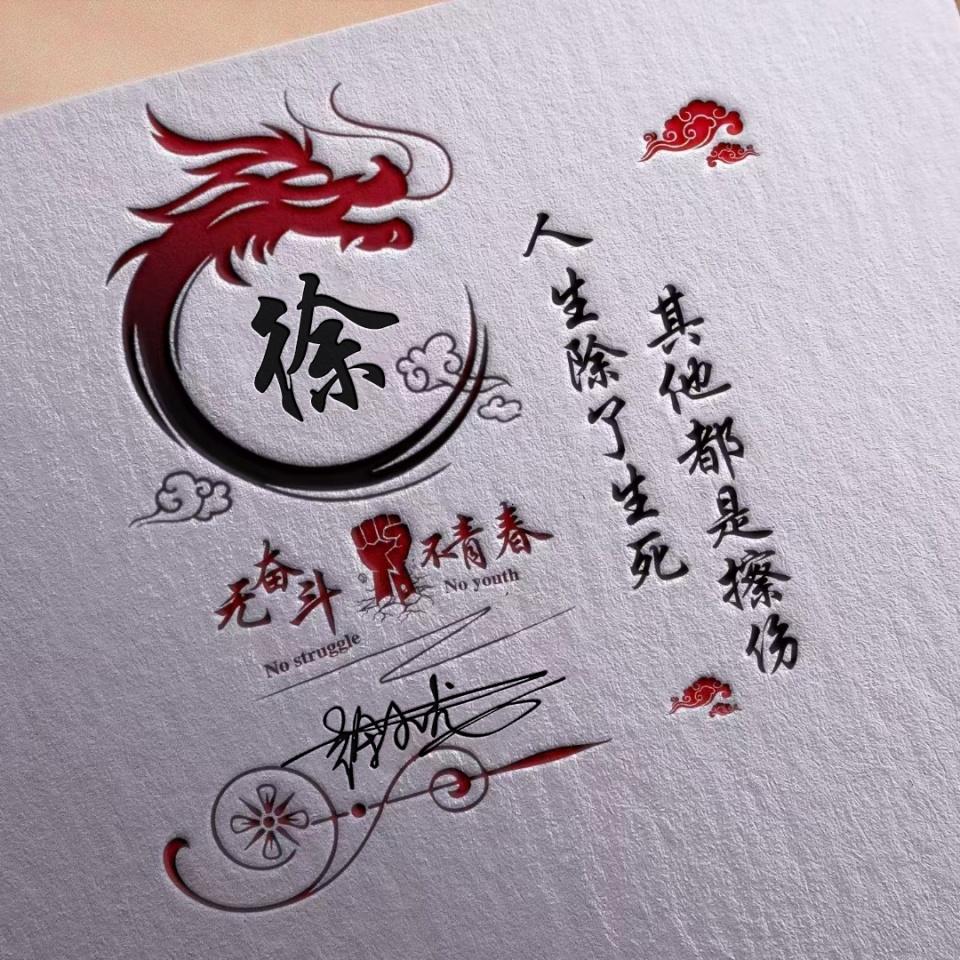 徐
无奋斗 不青春
No struggle No youth
人生除了生死
其他都是擦伤